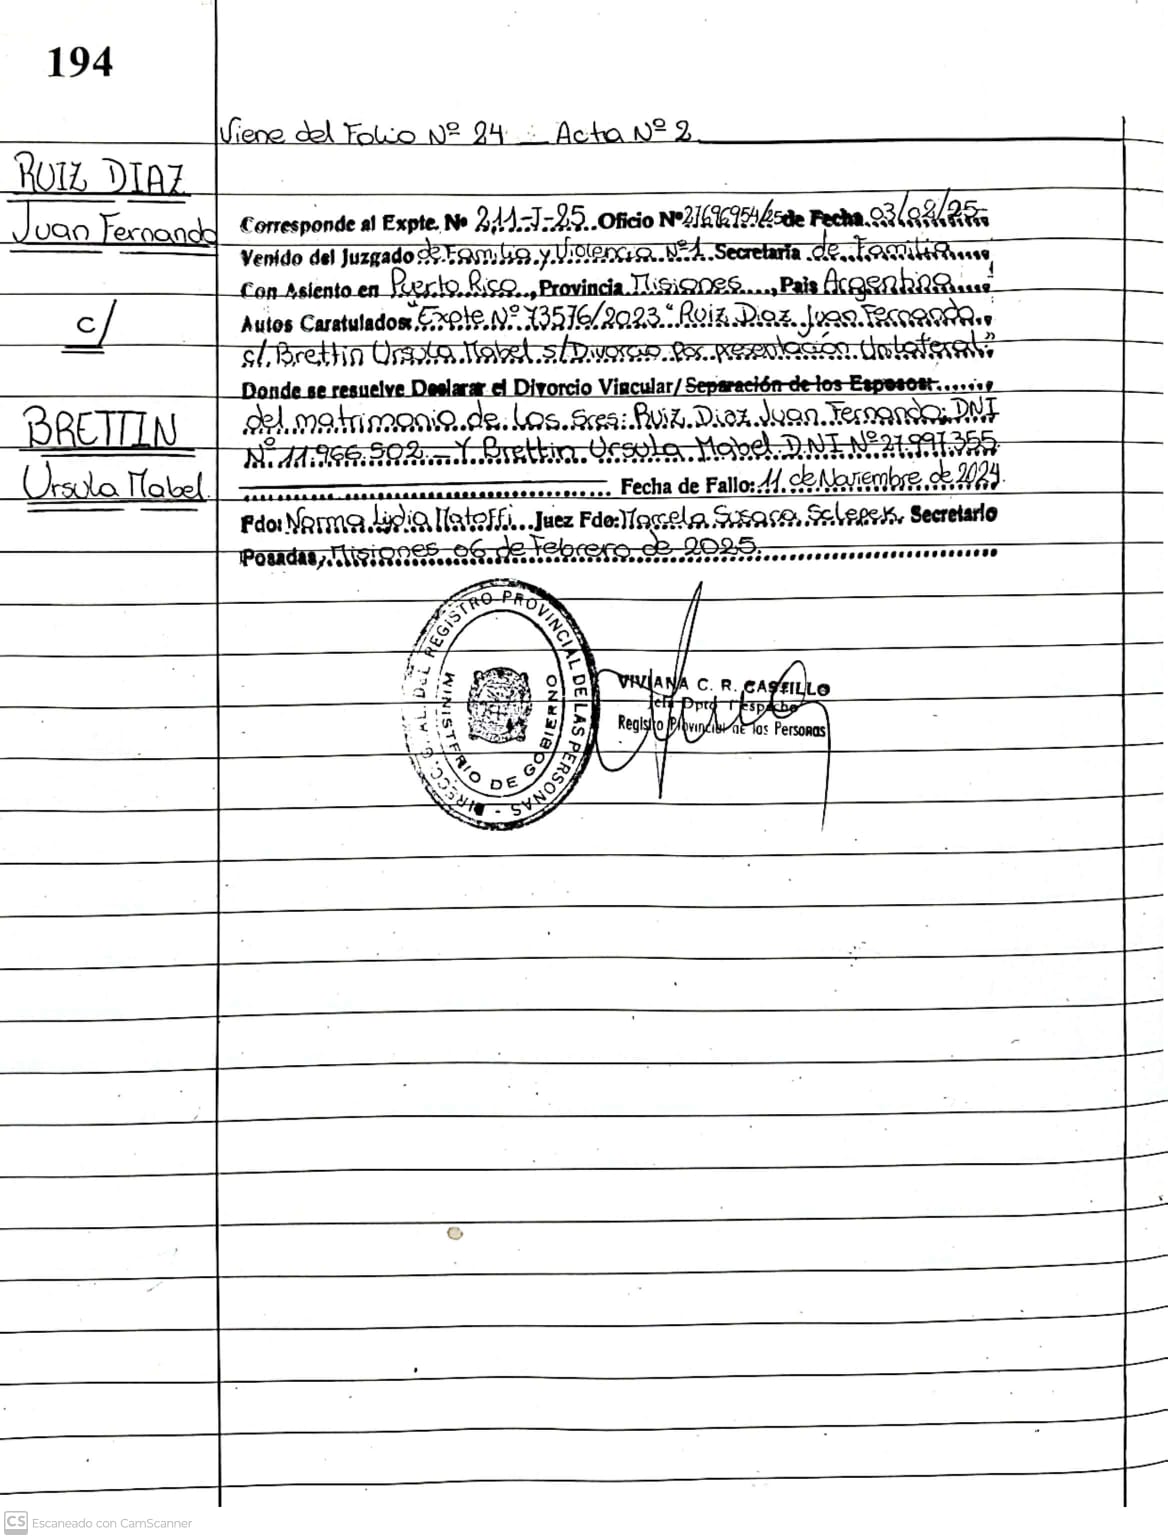 194
Viene del Folio Nº 24 : Acta Nº 2
RUIZ DIAZ
Juan Fernando
c/
BRETTIN
Ursula Mabel.
Corresponde al Expte. Nº 211-J-25 Oficio Nº 27696954/25 de Fecha 03/02/25
Venido del Juzgado de Familia y Violencia Nº1 Secretaría de Familia
Con Asiento en Puerto Rico, Provincia Misiones, Pais Argentina
Autos Caratulados: "Expte. Nº 73576/2023 "Ruiz Diaz Juan Fernando
c/. Brettin Ursula Mabel s/Divorcio Por presentación Unilateral"
Donde se resuelve Declarar el Divorcio Vincular/Separación de los Esposos:
del matrimonio de Los Sres: Ruiz Diaz Juan Fernando: DNI
Nº 11.966.502 - Y Brettin Ursula Mabel DNI Nº 27.997.355
Fecha de Fallo: 11 de Noviembre de 2024.
Fdo: Norma Lydia Juez Fdo: Marcela Susana Secretario
Posadas, Misiones 06 de Febrero de 2025.
DIRECC. GRAL. DEL REGISTRO PROVINCIAL DE LAS PERSONAS -
MINISTERIO DE GOBIERNO
VIVIANA C. R. CASTILLO
Jefa Dpto. Despacho
Registro Provincial de las Personas
CS Escaneado con CamScanner